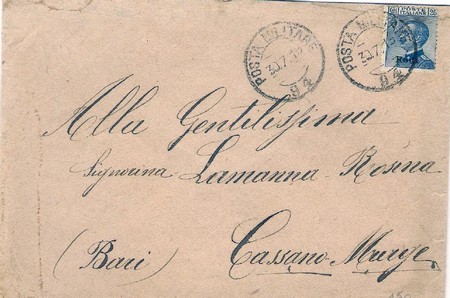 POSTA MILITARE
30.7.12
94
POSTA MILITARE
30.7.12
94
25 POSTE ITALIANE 25
Rodi
Alla Gentilissima
Signorina Lamanna Rosina
(Bari) Cassano-Murge